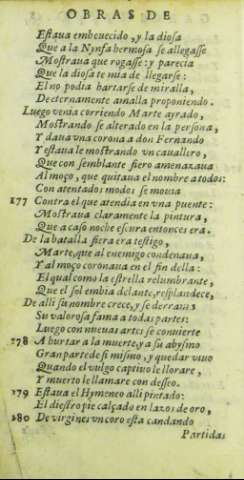 OBRAS DE
Estaua embeuecido, y la diosa
Que a la Nynfa hermosa se allegasse
Mostraua que rogasse: y parecia
Que la diosa temia de llegarse:
El no podia hartarse de miralla,
De eternamente amalla proponiendo.
Luego venia corriendo Marte ayrado,
Mostrando se alterado en la persona,
Y daua vna corona a don Fernando
Y estaua le mostrando vn cauallero,
Que con semblante fiero amenazaua
Al moço, que quitaua el nombre a todos:
Con atentados modos se mouia
177 Contra el que atendia en vna puente:
Mostraua claramente la pintura,
Que a caso noche escura entonces era.
De la batalla fiera era testigo,
Marte, que al enemigo condenaua,
Y al moço coronaua en el fin della:
El qual como la estrella relumbrante,
Que el sol embia delante, resplandece,
De alli su nombre crece, y se derrama
Su valorosa fama a todas partes:
Luego con nueuas artes se conuierte
178 A hurtar a la muerte, y a su abysmo
Gran parte de si mismo, y quedar viuo
Quando el vulgo captiuo le llorare,
Y muerto le llamare con desseo.
179 Estaua el Hymeneo alli pintado:
El diestro pie calçado en lazos de oro,
180 De virgines vn coro esta cantando
Partidas